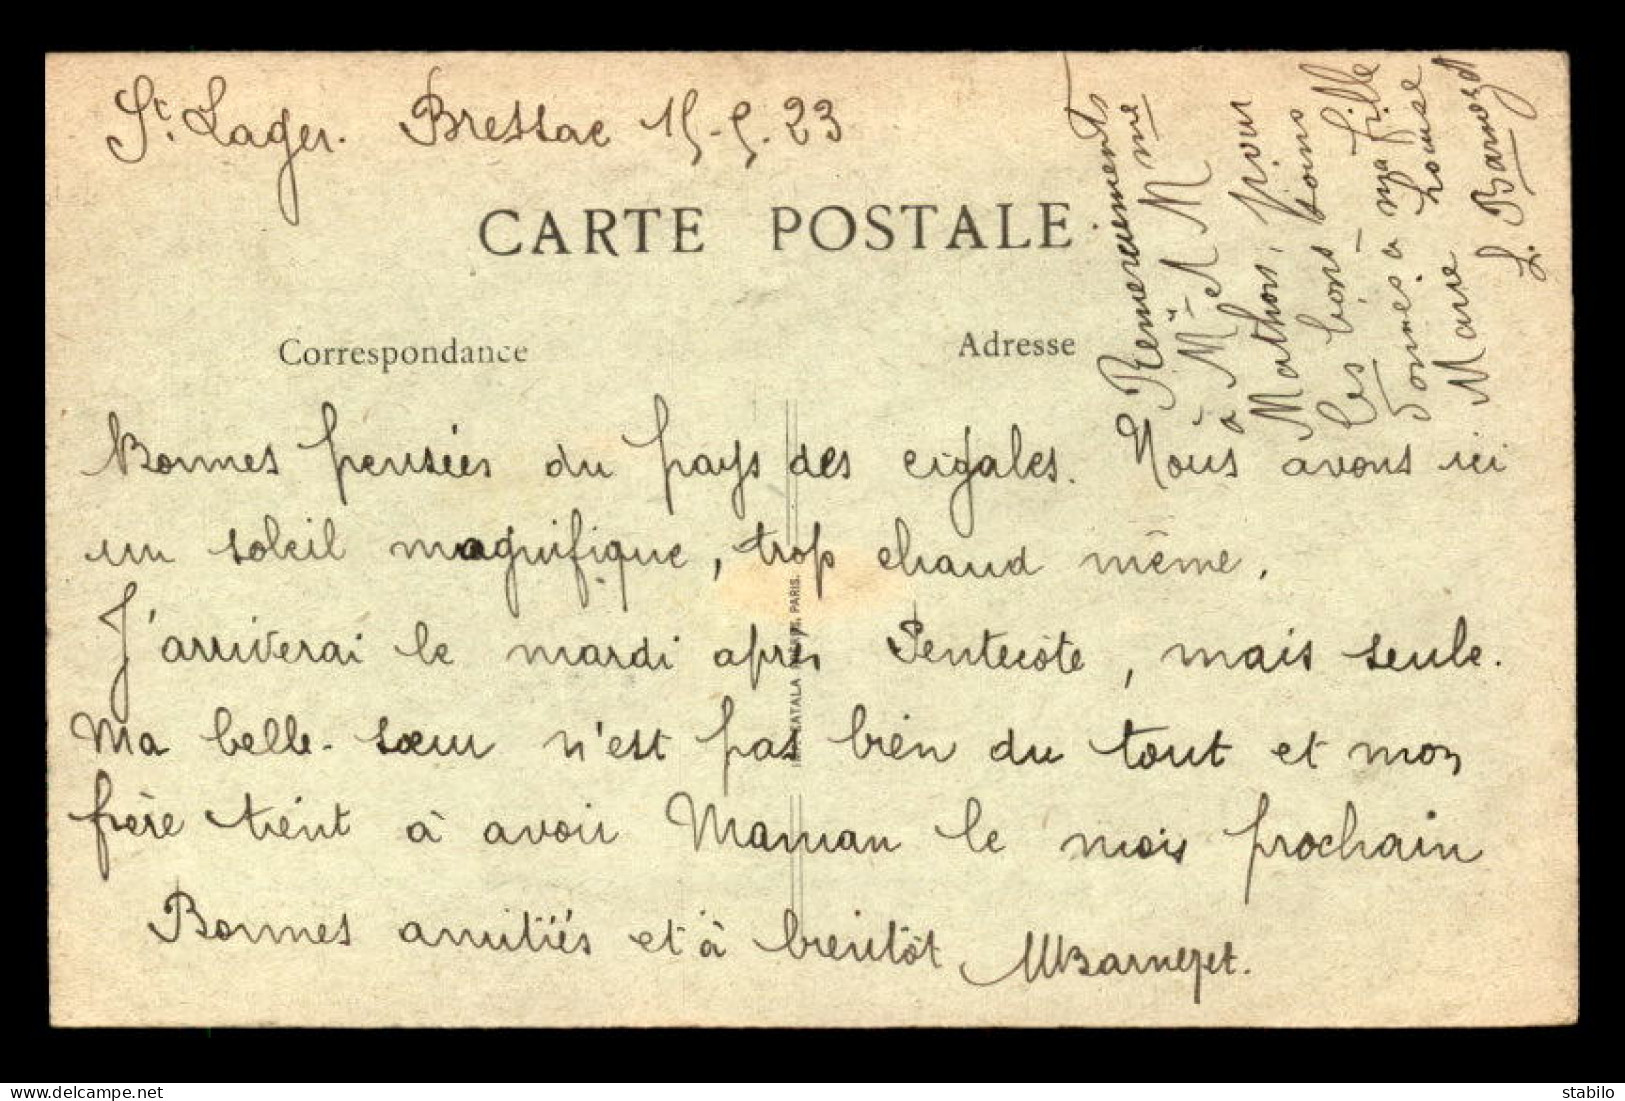 St. Lager. Bressac 15-5.23
CARTE POSTALE
Correspondance
Adresse
Bonnes pensées du pays des cigales. Nous avons ici
un soleil magnifique, trop chaud même.
J'arriverai le mardi après Pentecôte, mais seule.
Ma belle-sœur n'est pas bien du tout et mon
frère tient à avoir Maman le mois prochain
Bonnes amitiés et à bientôt MBarnezet.
Remerciements
à Mr et Mme
Mathon, pour
les bons soins
donnés à ma fille
Marie Louise
L. Barnezet
CATALA PARIS.
stabilo